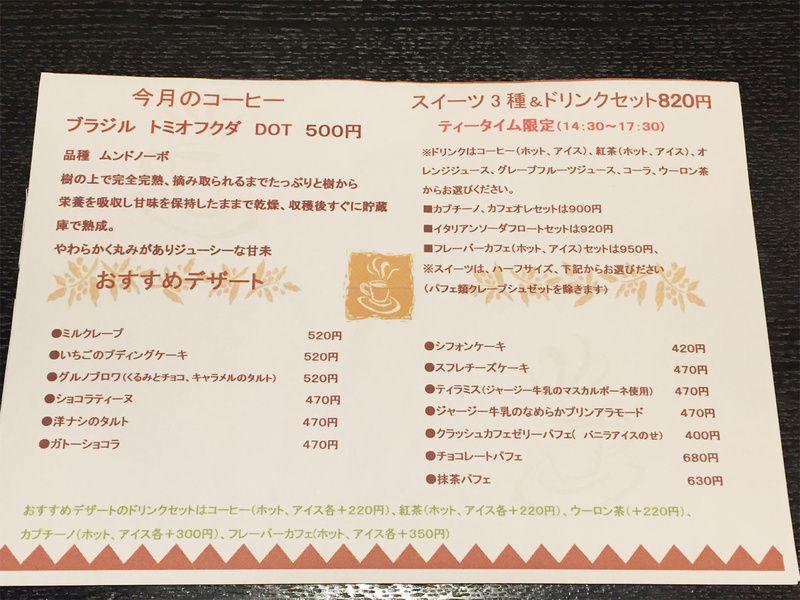 今月のコーヒー
ブラジル トミオフクダ DOT 500円
品種 ムンドノーボ
樹の上で完全完熟、摘み取られるまでたっぷりと樹から
栄養を吸収し甘味を保持したままで乾燥、収穫後すぐに貯蔵
庫で熟成。
やわらかく丸みがありジューシーな甘未
おすすめデザート
●ミルクレープ 520円
●いちごのプディングケーキ 520円
●グルノブロワ(くるみとチョコ、キャラメルのタルト) 520円
●ショコラティーヌ 470円
●洋ナシのタルト 470円
●ガトーショコラ 470円
スイーツ3種&ドリンクセット820円
ティータイム限定(14:30~17:30)
※ドリンクはコーヒー(ホット、アイス)、紅茶(ホット、アイス)、オ
レンジジュース、グレープフルーツジュース、コーラ、ウーロン茶
からお選びください。
■カプチーノ、カフェオレセットは900円
■イタリアンソーダフロートセットは920円
■フレーバーカフェ(ホット、アイス)セットは950円、
※スイーツは、ハーフサイズ、下記からお選びください
(パフェ類クレープシュゼットを除きます)
●シフォンケーキ 420円
●スフレチーズケーキ 470円
●ティラミス(ジャージー牛乳のマスカルポーネ使用) 470円
●ジャージー牛乳のなめらかプリンアラモード 470円
●クラッシュカフェゼリーパフェ( バニラアイスのせ) 400円
●チョコレートパフェ 680円
●抹茶パフェ 630円
おすすめデザートのドリンクセットはコーヒー(ホット、アイス各+220円)、紅茶(ホット、アイス各+220円)、ウーロン茶(+220円)、
カプチーノ(ホット、アイス各+300円)、フレーバーカフェ(ホット、アイス各+350円)